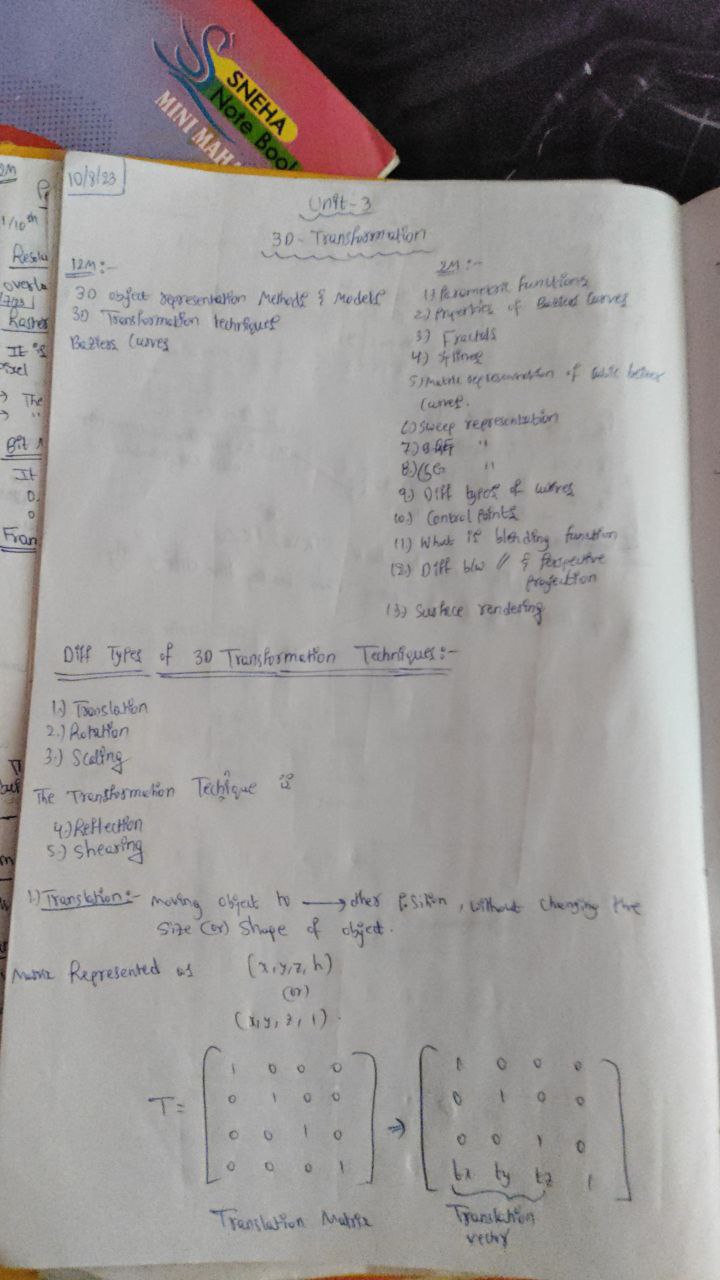 SNEHA
Note Book
MINI MAHA
10/8/23
Unit-3
3D-Transformation
12M:-
3D object representation Methods & Models
3D Transformation techniques
Beziers Curves
2M:-
1) Parametric Functions
2) Properties of Beziers Curves
3) Fractals
4) Splines
5) Matrix representation of Cubic bezier
Curves.
6) Sweep representation
7) "
8.) CSG "
9.) Diff types of curves
10.) Control Points
11) What is blending function
12.) Diff b/w // & Perspective
Projection
13) Surface rendering
Diff Types of 3D Transformation Techniques:-
1.) Translation
2.) Rotation
3.) Scaling
The Transformation Techique is
4.) Reflection
5.) Shearing
1.) Translation:- Moving object to → other Position, without changing the
Size (or) Shape of object.
Matrix Represented as (x,y,z,h)
(or)
(x,y,z,1).
T = [ 1 0 0 0 ⇒ [ 1 0 0 0
0 1 0 0 0 1 0 0
0 0 1 0 0 0 1 0
0 0 0 1 ] tx ty tz 1 ]
Translation Matrix Translation
vector
2M
1/10th
Rasher
It is
pixel
→ The
→ "
Bit
It
0.
0
Fram